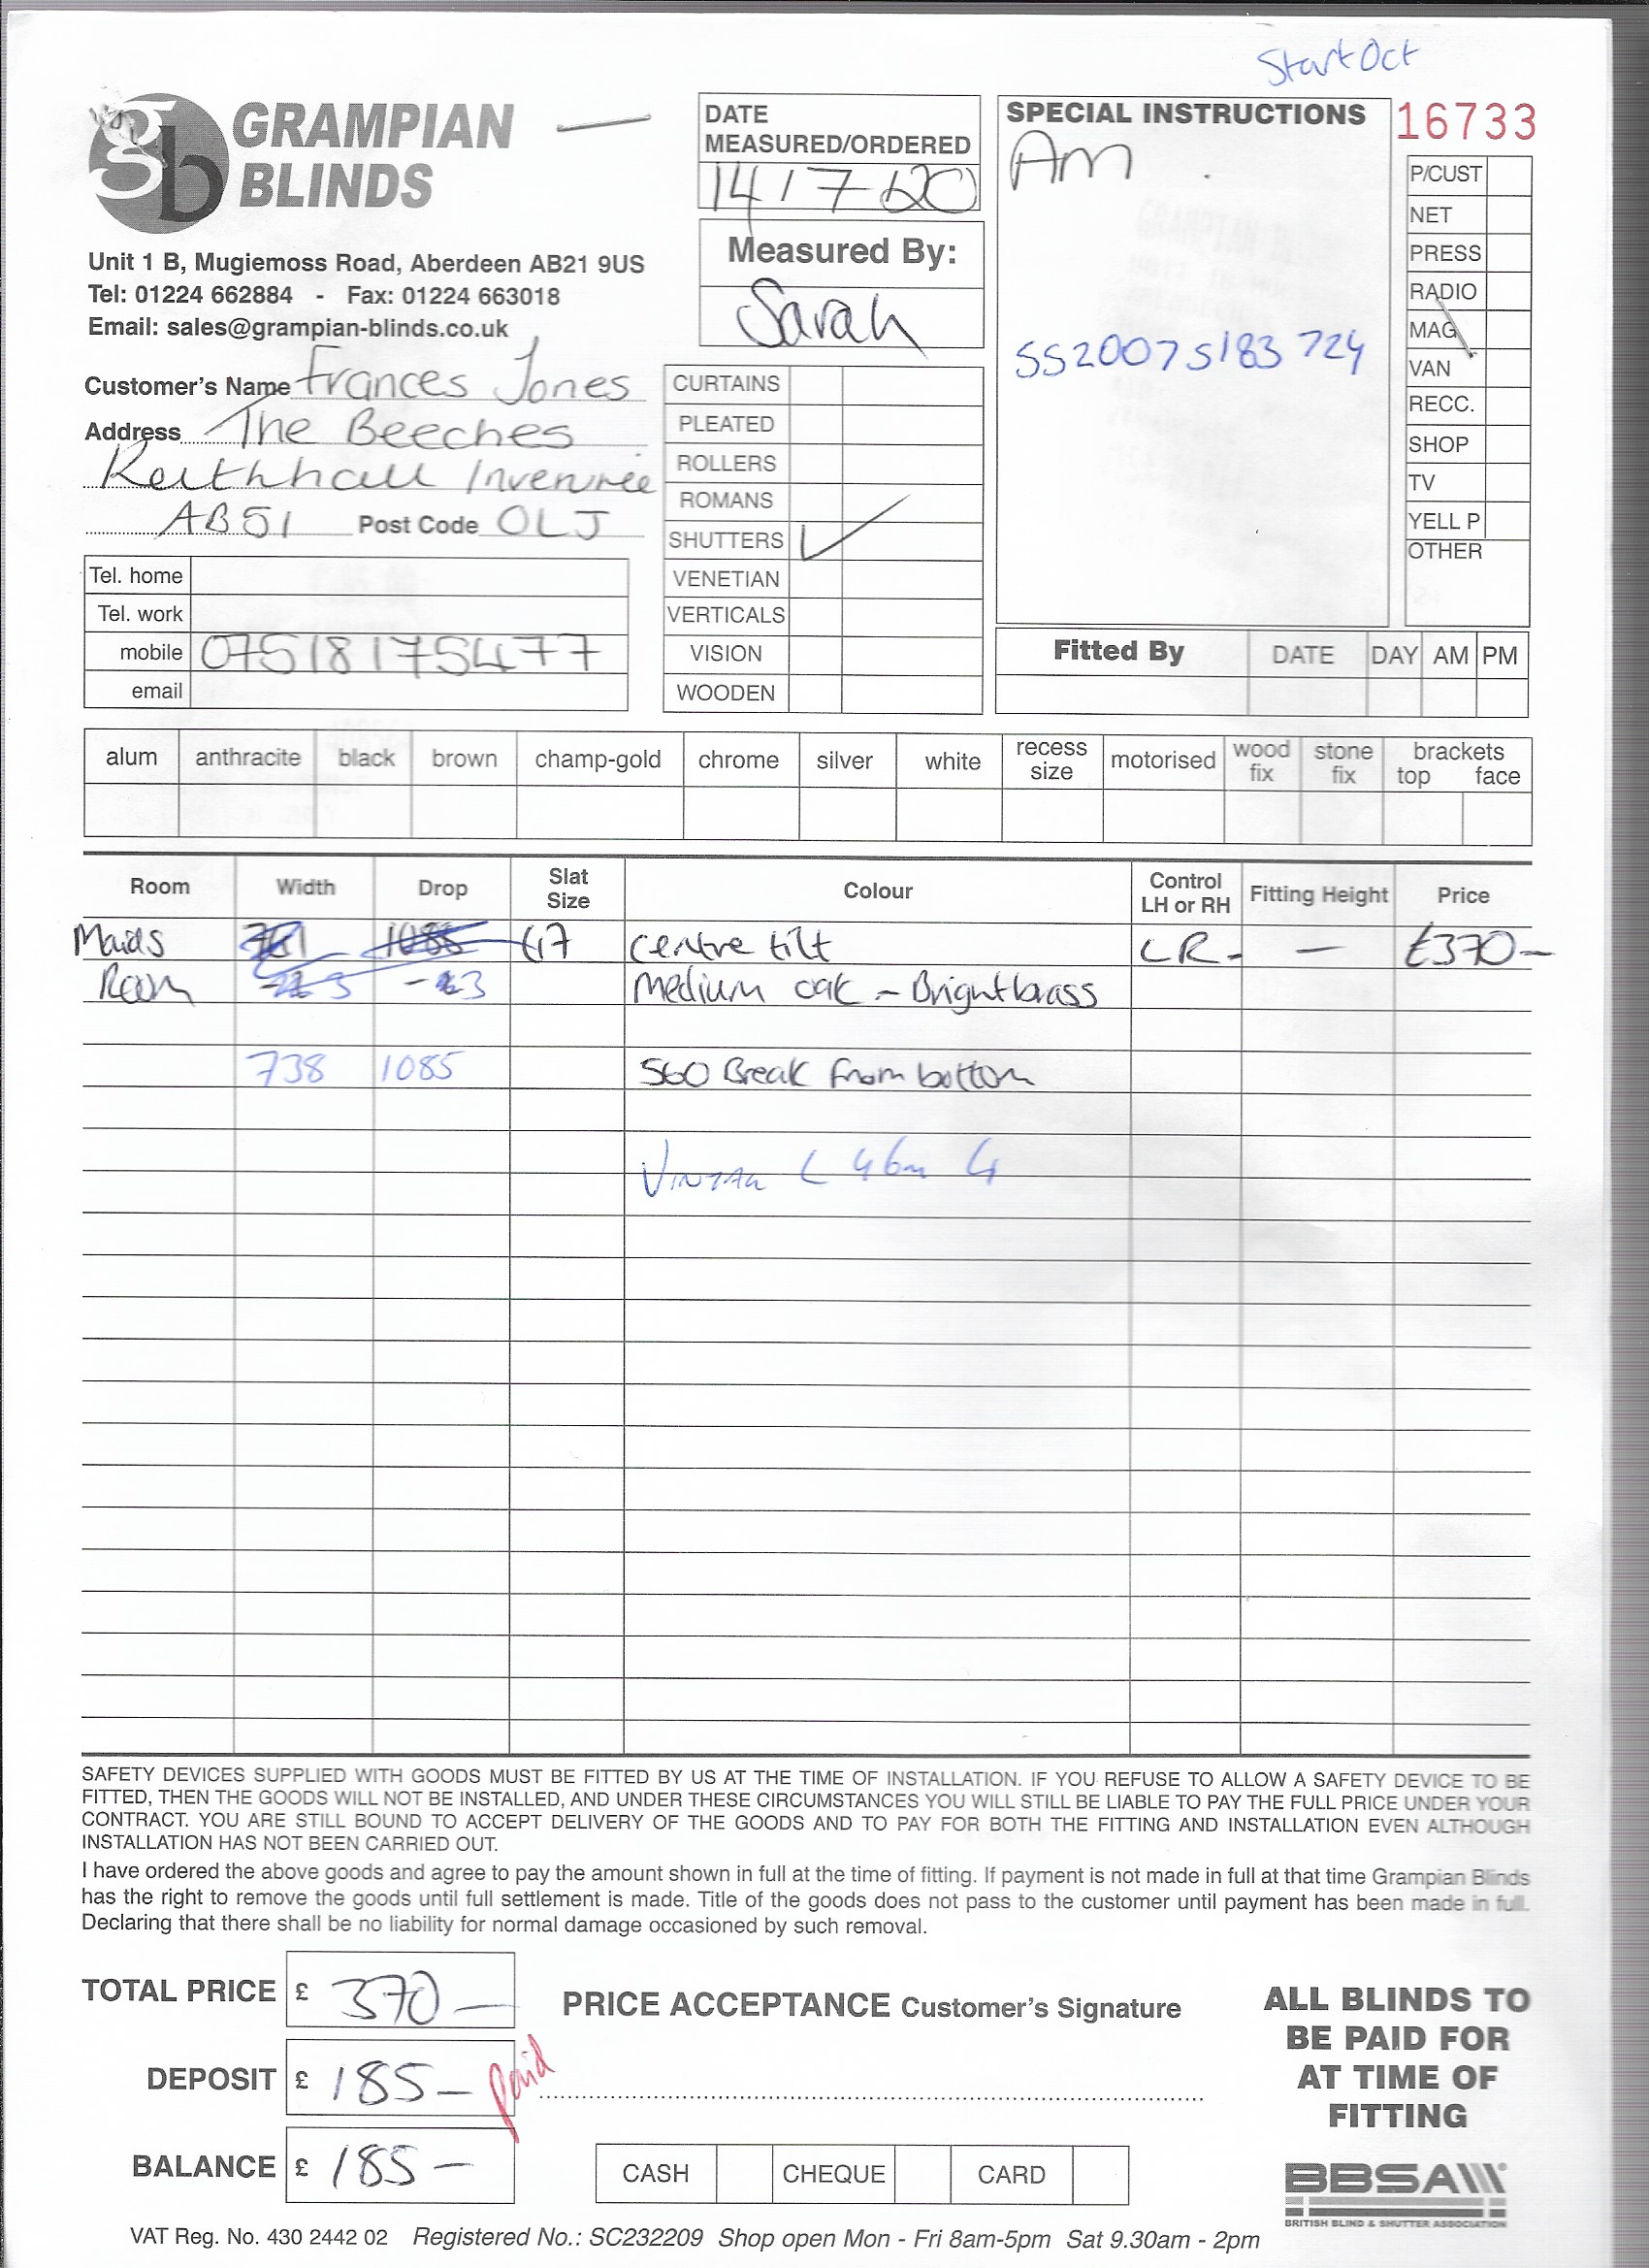 Start Oct
gb GRAMPIAN BLINDS
Unit 1 B, Mugiemoss Road, Aberdeen AB21 9US
Tel: 01224 662884 - Fax: 01224 663018
Email: sales@grampian-blinds.co.uk
Customer's Name Frances Jones
Address The Beeches
Keithhall Inverurie
AB51 Post Code 0LJ
Tel. home
Tel. work
mobile 07518175477
email
DATE
MEASURED/ORDERED
14/7/20
Measured By:
Sarah
CURTAINS
PLEATED
ROLLERS
ROMANS
SHUTTERS ✓
VENETIAN
VERTICALS
VISION
WOODEN
SPECIAL INSTRUCTIONS
AM
SS20075183724
16733
P/CUST
NET
PRESS
RADIO
MAG
VAN
RECC.
SHOP
TV
YELL P
OTHER
Fitted By DATE DAY AM PM
alum anthracite black brown champ-gold chrome silver white recess size motorised wood fix stone fix brackets top face
Room Width Drop Slat Size Colour Control LH or RH Fitting Height Price
Maids 1088 centre tilt LR- — £370—
Room medium oak - Bright brass
738 1085 560 Break from bottom
SAFETY DEVICES SUPPLIED WITH GOODS MUST BE FITTED BY US AT THE TIME OF INSTALLATION. IF YOU REFUSE TO ALLOW A SAFETY DEVICE TO BE
FITTED, THEN THE GOODS WILL NOT BE INSTALLED, AND UNDER THESE CIRCUMSTANCES YOU WILL STILL BE LIABLE TO PAY THE FULL PRICE UNDER YOUR
CONTRACT. YOU ARE STILL BOUND TO ACCEPT DELIVERY OF THE GOODS AND TO PAY FOR BOTH THE FITTING AND INSTALLATION EVEN ALTHOUGH
INSTALLATION HAS NOT BEEN CARRIED OUT.
I have ordered the above goods and agree to pay the amount shown in full at the time of fitting. If payment is not made in full at that time Grampian Blinds
has the right to remove the goods until full settlement is made. Title of the goods does not pass to the customer until payment has been made in full.
Declaring that there shall be no liability for normal damage occasioned by such removal.
TOTAL PRICE £ 370—
DEPOSIT £ 185— paid
BALANCE £ 185—
PRICE ACCEPTANCE Customer's Signature
CASH CHEQUE CARD
ALL BLINDS TO
BE PAID FOR
AT TIME OF
FITTING
BBSA
BRITISH BLIND & SHUTTER ASSOCIATION
VAT Reg. No. 430 2442 02 Registered No.: SC232209 Shop open Mon - Fri 8am-5pm Sat 9.30am - 2pm